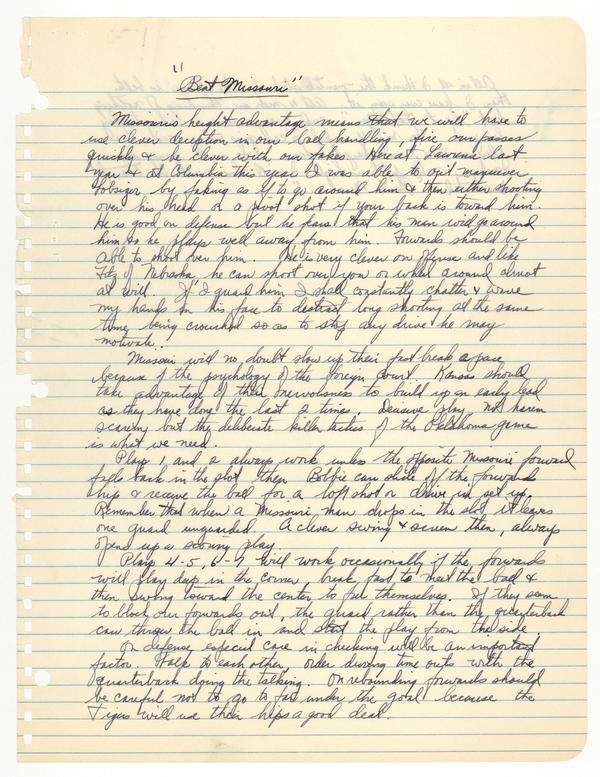 "Beat Missouri"
Missouri's height advantage means that we will have to
use clever deception in our ball handling, fire our passes
quickly & be clever with our fakes. Here at Lawrence last
year & at Columbia this year I was able to out maneuver
Lobsiger by faking as if to go around him & then either shooting
over his head or a pivot shot if your back is toward him.
He is good on defense but he fears that his man will go around
him so he plays well away from him. Forwards should be
able to shoot over him. He is very clever on offense and like
Fitz of Nebraska he can shoot over you or wheel around almost
at will. If I guard him I shall constantly chatter & wave
my hands in his face to distract long shooting at the same
time being crouched so as to stop any drive he may
motivate.
Missouri will no doubt slow up their fast break a pace
because of the psychology of the foreign court. Kansas should
take advantage of their nervousness to build up an early lead
as they have done the last 2 times, decisive play, not harem
scarem but the deliberate killer tactics of the Oklahoma game
is what we need.
Plays 1 and 2 always work unless the opposite Missouri forward
falls back in the slot, then can slide off the forwards
hip & receive the ball for a loft shot or drive in set up.
Remember that when a Missouri man drops in the slot it leaves
one guard unguarded. A clever swing & screen then, always
opens up a scoring play.
Plays 4-5, 6-7 will work occasionally if the forwards
will play deep in the corner, break fast to meet the ball &
then swing toward the center to free themselves. If they seem
to block our forwards out, the guard rather than the quarterback
can throw the ball in and start the play from the side.
On defense, especial care in checking will be an important
factor. Talk to each other, order during time outs with the
quarterback doing the talking. On rebounding forwards should
be careful not to go to far under the goal because the
Tigers will use their hips a good deal.